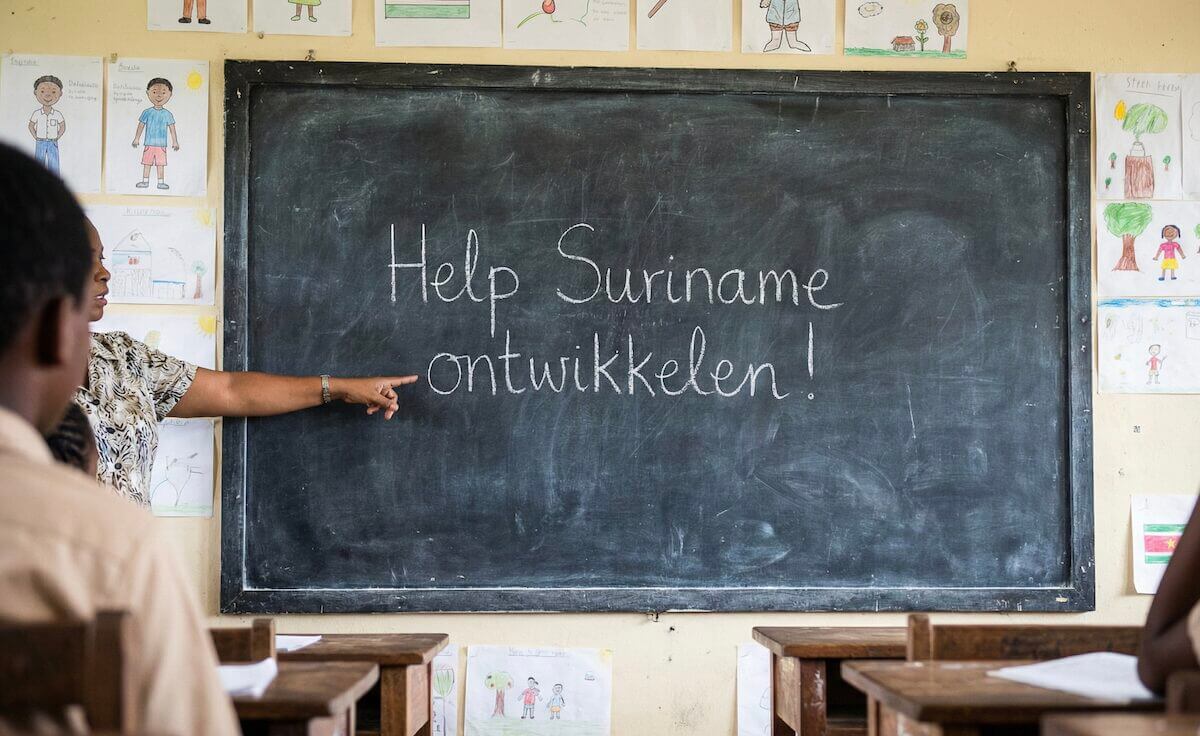 Help Suriname
ontwikkelen!